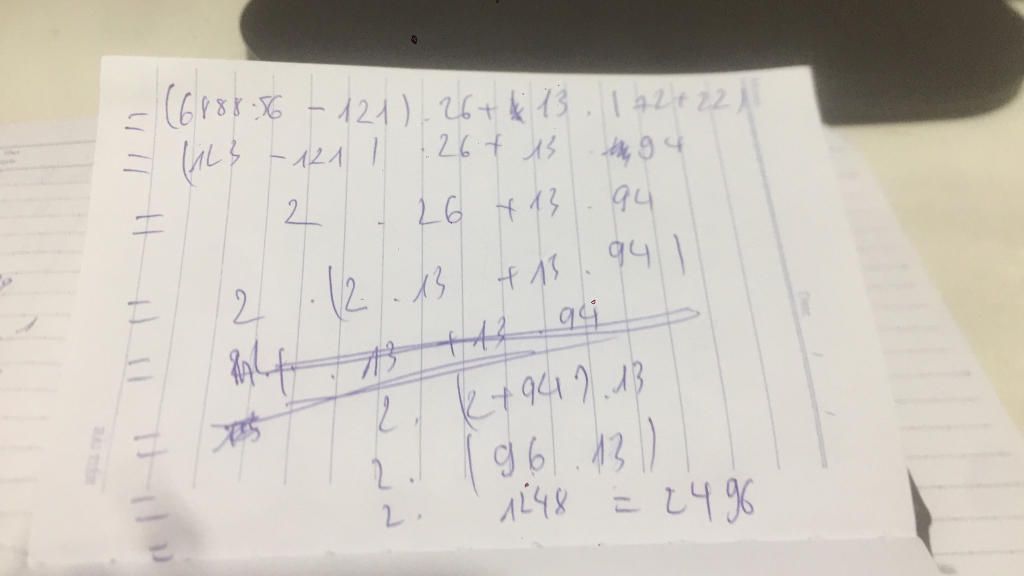 = (6888:56 - 121) . 26 + 13 . (72+22)
= (123 - 121) . 26 + 13 . 94
= 2 . 26 + 13 . 94
= 2 . (2 . 13 + 13 . 94)
= . 13 + 13 . 94
2 . (2+94) . 13
= 2 . (96 . 13)
= 2 . 1248 = 2496
=